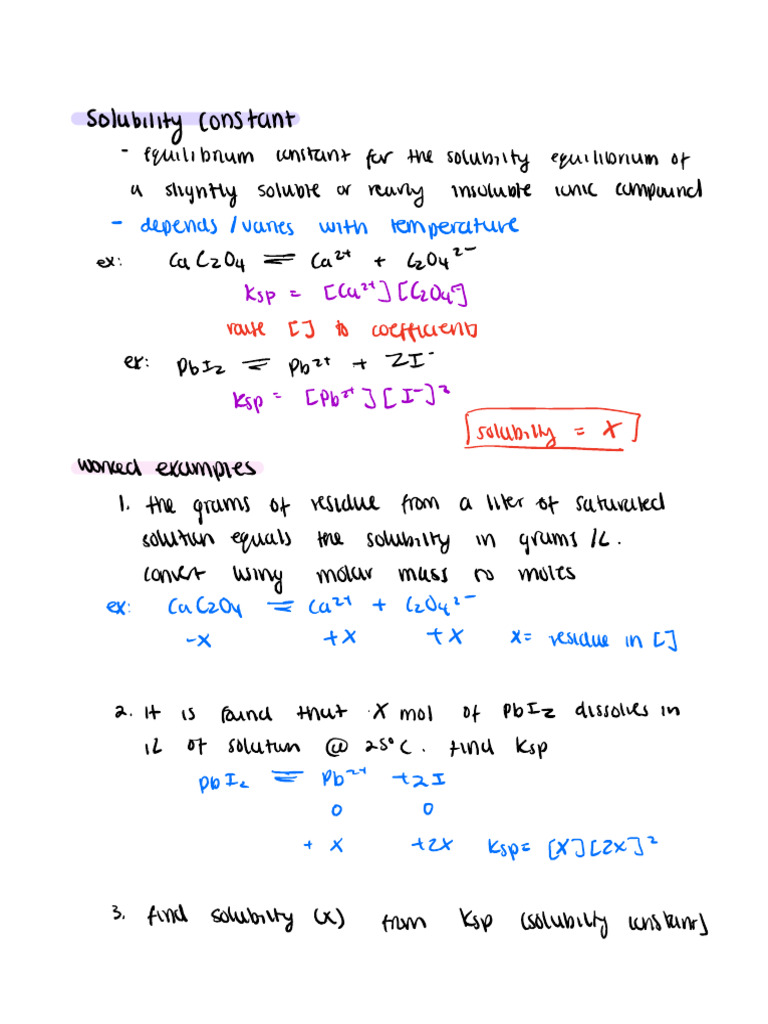 Solubility Constant
- equilibrium constant for the solubility equilibrium of
a slightly soluble or nearly insoluble ionic compound
- depends/varies with temperature
ex: CaC₂O₄ ⇌ Ca²⁺ + C₂O₄²⁻
Ksp = [Ca²⁺][C₂O₄²⁻]
raise [] to coefficients
ex: PbI₂ ⇌ Pb²⁺ + 2I⁻
Ksp = [Pb²⁺][I⁻]²
solubility = x
worked examples
1. the grams of residue from a liter of saturated
solution equals the solubility in grams/L.
convert using molar mass to moles
ex: CaC₂O₄ ⇌ Ca²⁺ + C₂O₄²⁻
-x +x +x x = residue in []
2. it is found that x mol of PbI₂ dissolves in
1L of solution @ 25°C. find Ksp
PbI₂ ⇌ Pb²⁺ + 2I
0 0
+ x +2x Ksp = [x][2x]²
3. find solubility (x) from Ksp (solubility constant)